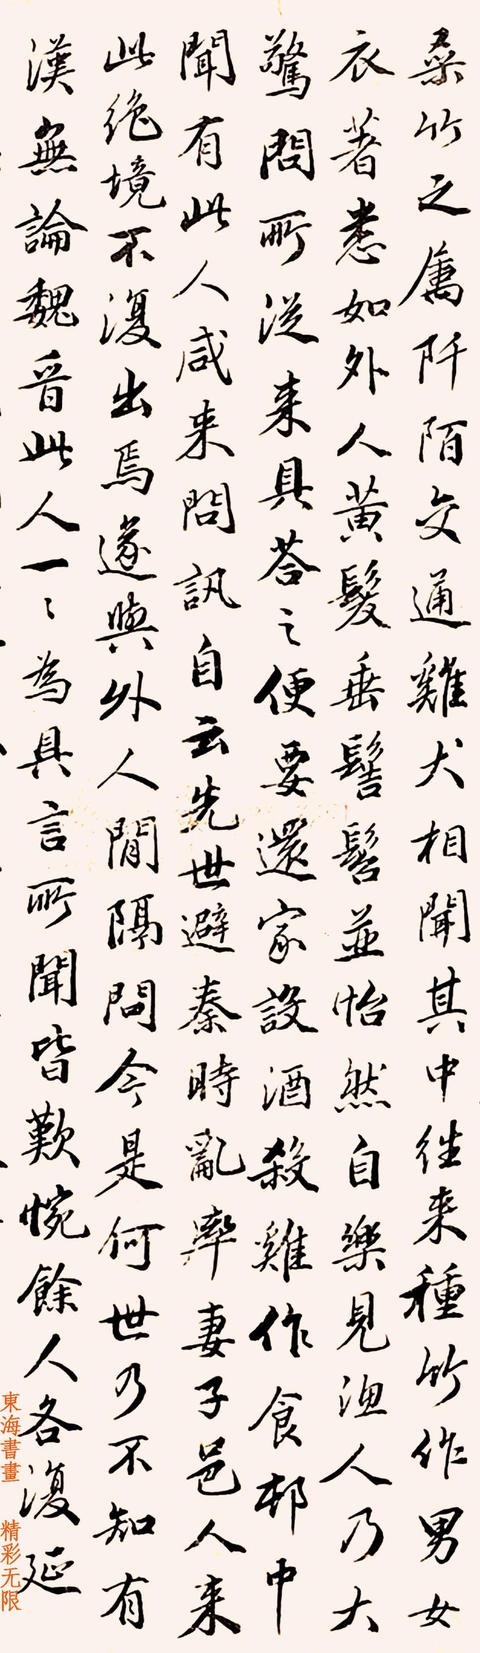 桑竹之屬阡陌交通雞犬相聞其中往来種竹作男女
衣著悉如外人黄髮垂髫髫並怡然自樂見漁人乃大
驚問所從来具荅之便要還家設酒殺雞作食邨中
聞有此人咸来問訊自云先世避秦時亂率妻子邑人来
此絶境不復出焉遂與外人閒隔問今是何世乃不知有
漢無論魏晉此人一々為具言所聞皆歎惋餘人各復延
東海書畫 精彩无限